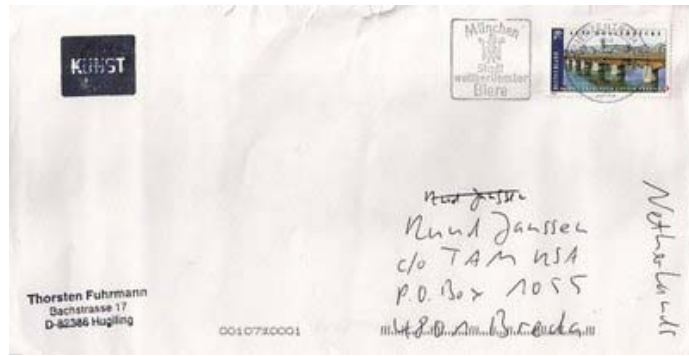 KUNST
München
Stadt
weltberühmter
Biere
Ruud Janssen
Ruud Janssen
c/o TAM RSA
P.O. Box 1055
4801 Breda
Netherlands
Thorsten Fuhrmann
Bachstrasse 17
D-82386 Huglfing
0010720001